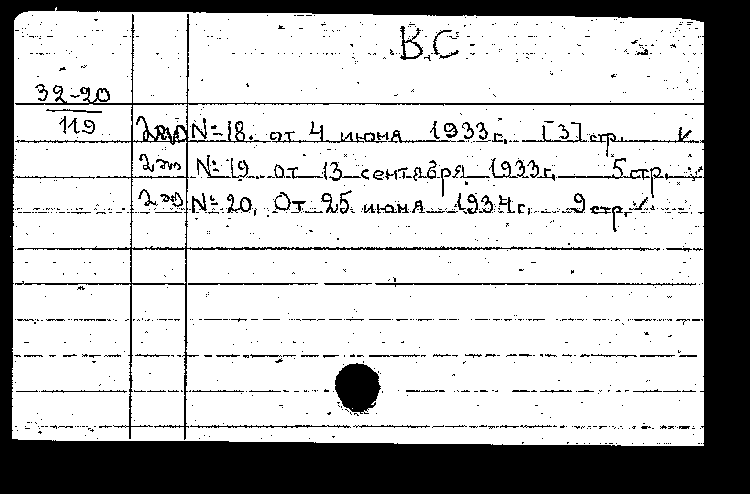 В.С
32-20
119
2экз N=18. от 4 июня 1933г. [3] стр. ✓
2экз N=19 от 13 сентября 1933г. 5 стр. ✓
2экз N=20. От 25 июня 1934г. 9 стр. ✓